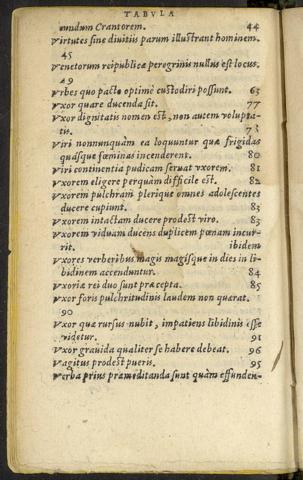 TABVLA
mundum Crantorem. 44
Virtutes sine diuitiis parum illustrant hominem.
45
Venetorum reipublicæ peregrinis nullus est locus.
49
Vrbes quo pacto optimè custodiri possunt. 63
Vxor quare ducenda sit. 77
Vxor dignitatis nomen est, non autem volupta-
tis. 73
Viri nonnunquàm ea loquuntur quæ frigidas
quasque fœminas incenderent. 80
Viri continentia pudicam seruat vxorem. 81
Vxorem eligere perquàm difficile est. 82
Vxorem pulchram plerique omnes adolescentes
ducere cupiunt. 83
Vxorem intactam ducere prodest viro. 83
Vxorem viduam ducens duplicem pœnam incur-
rit. ibidem
Vxores verberibus magis magisque in dies in li-
bidinem accenduntur. 84
Vxoriæ rei duo sunt præcepta. 85
Vxor foris pulchritudinis laudem non quærat.
90
Vxor quæ rursus nubit, impatiens libidinis esse
videtur. 91
Vxor grauida qualiter se habere debeat. 96
Vagitus prodest pueris. 95
Verba prius præmeditanda sunt quàm effunden-